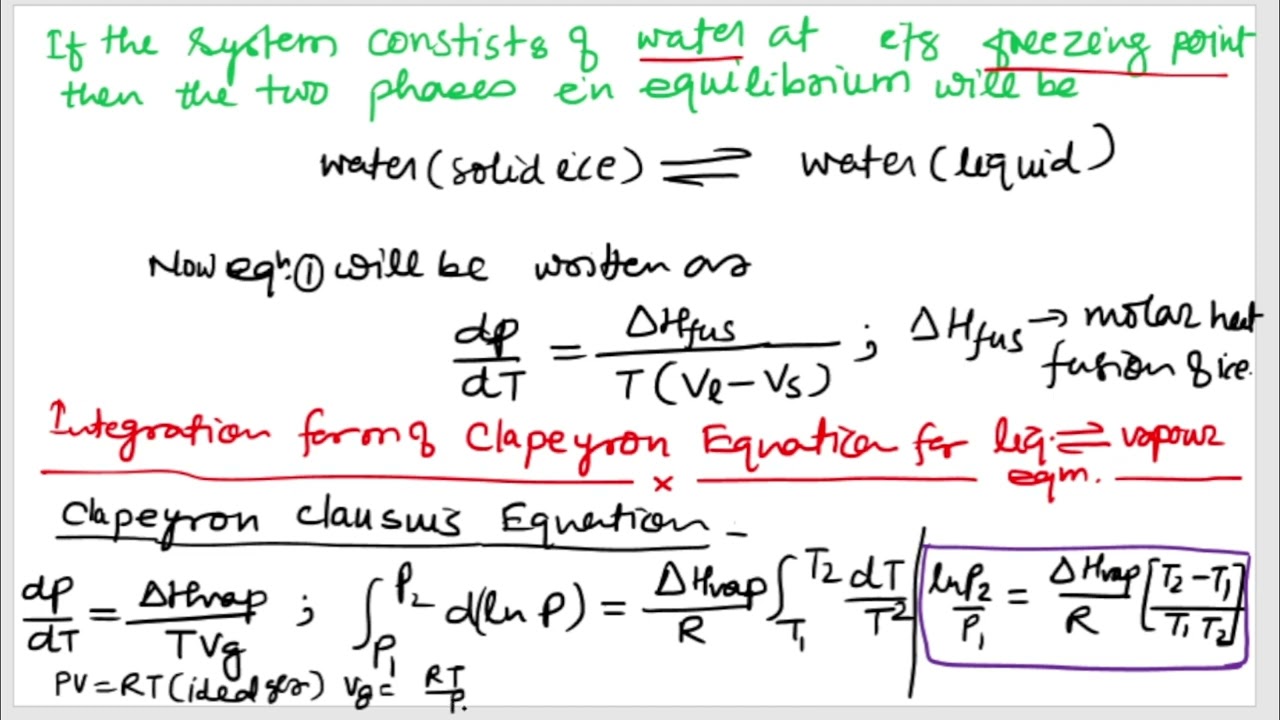 If the system constists of water at its freezing point
then the two phases in equilibrium will be
water (solid ice) ⇌ water (liquid)
Now eqn. ① will be written as
dp/dT = ΔHfus / T(Vl − Vs) ; ΔHfus → molar heat
fusion of ice.
Integration form of Clapeyron Equation for liq. ⇌ vapour
eqm.
×
Clapeyron Clausius Equation −
dp/dT = ΔHvap / TVg ; ∫P1^P2 d(ln P) = ΔHvap/R ∫T1^T2 dT/T² | ln P2/P1 = ΔHvap/R [T2 − T1 / T1 T2]
PV = RT (ideal gas) Vg = RT/P.